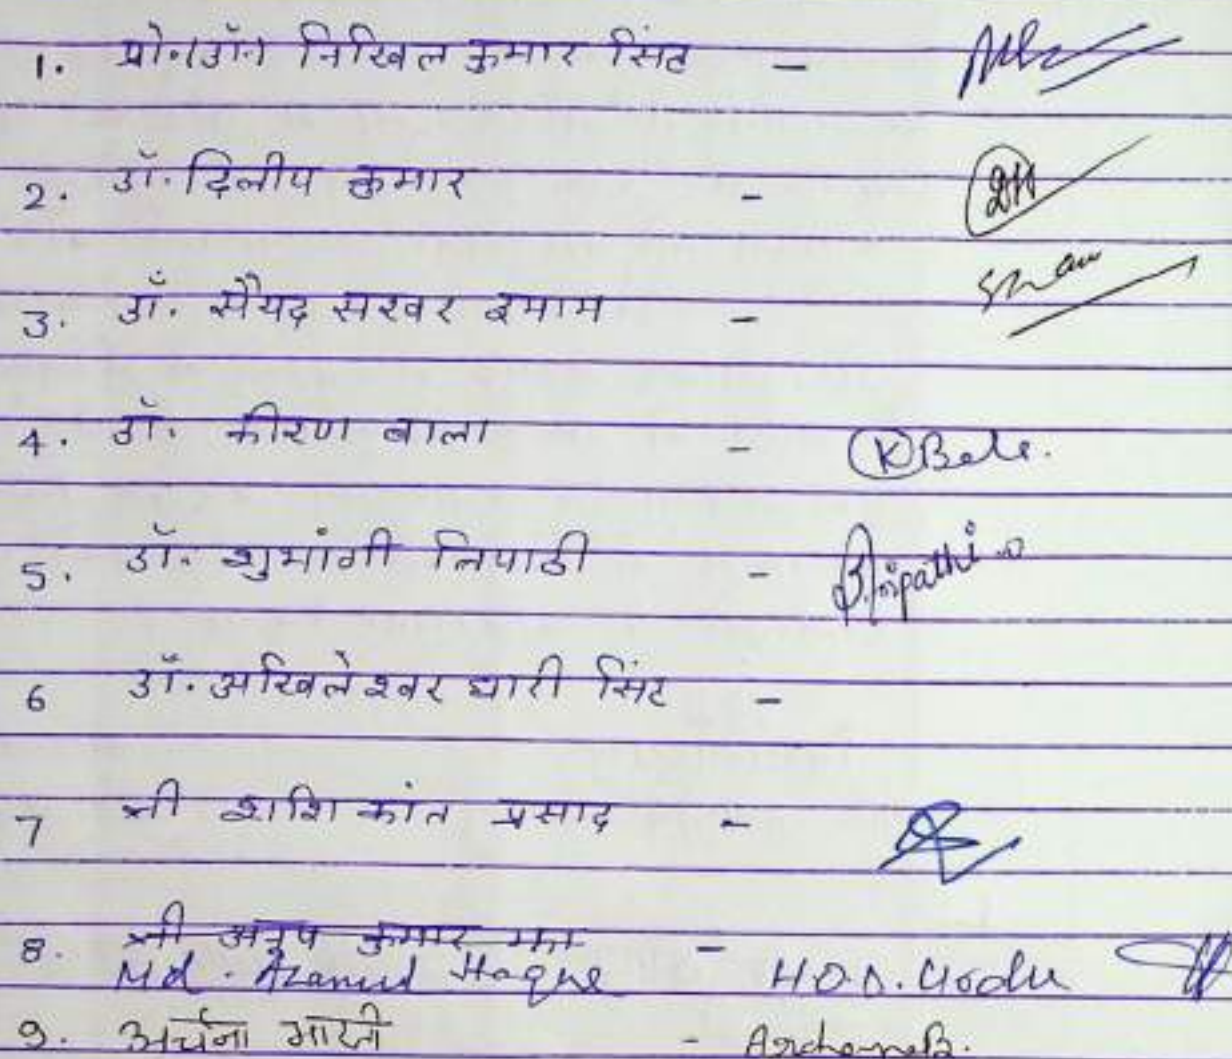 1. प्रो.(डॉ.) निखिल कुमार सिंह -
2. डॉ. दिलीप कुमार -
3. डॉ. सैयद सरवर इमाम -
4. डॉ. कीरण बाला - K Bala.
5. डॉ. शुभांगी त्रिपाठी - S.Tripathi
6 डॉ. अखिलेश्वर धारी सिंह -
7 श्री शशि कांत प्रसाद -
8. श्री अनुप कुमार झा -
Md. Azamul Haque H.O.D. Urdu
9. अर्चना भारती - Archana B.